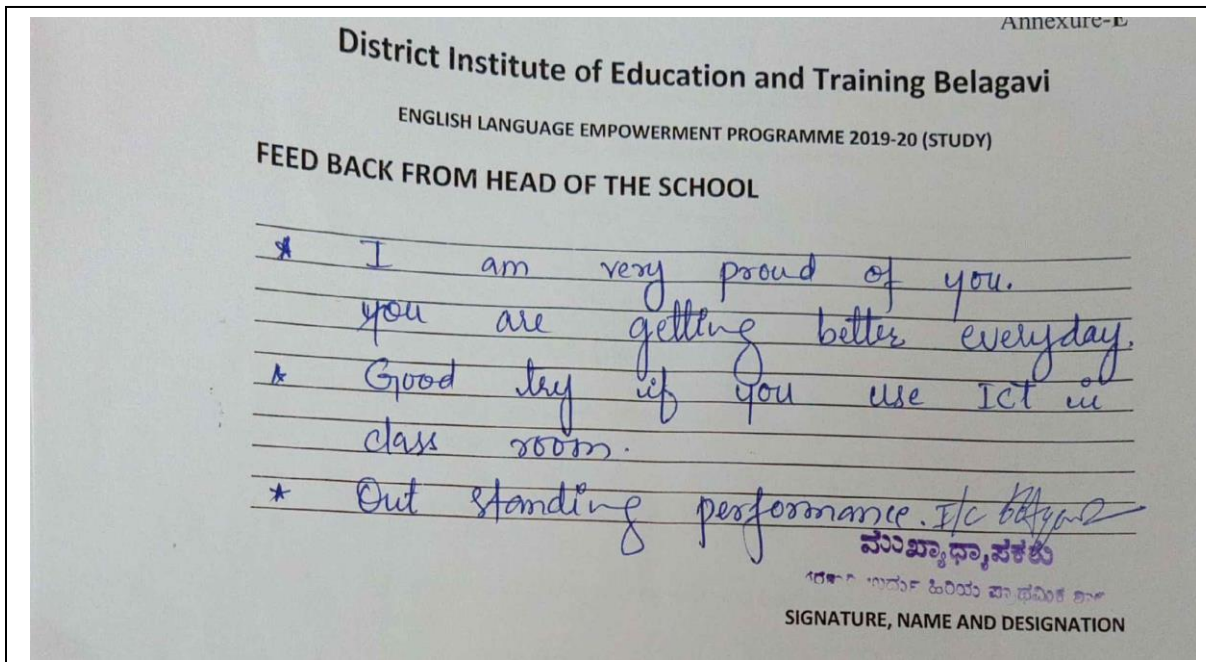 Annexure-E
District Institute of Education and Training Belagavi
ENGLISH LANGUAGE EMPOWERMENT PROGRAMME 2019-20 (STUDY)
FEED BACK FROM HEAD OF THE SCHOOL
* I am very proud of you.
you are getting better everyday.
* Good try if you use Ict in
class room.
* Out standing performance. I/c
ಮುಖ್ಯಾಧ್ಯಾಪಕರು
ಉರ್ದು ಹಿರಿಯ ಪ್ರಾಥಮಿಕ
SIGNATURE, NAME AND DESIGNATION